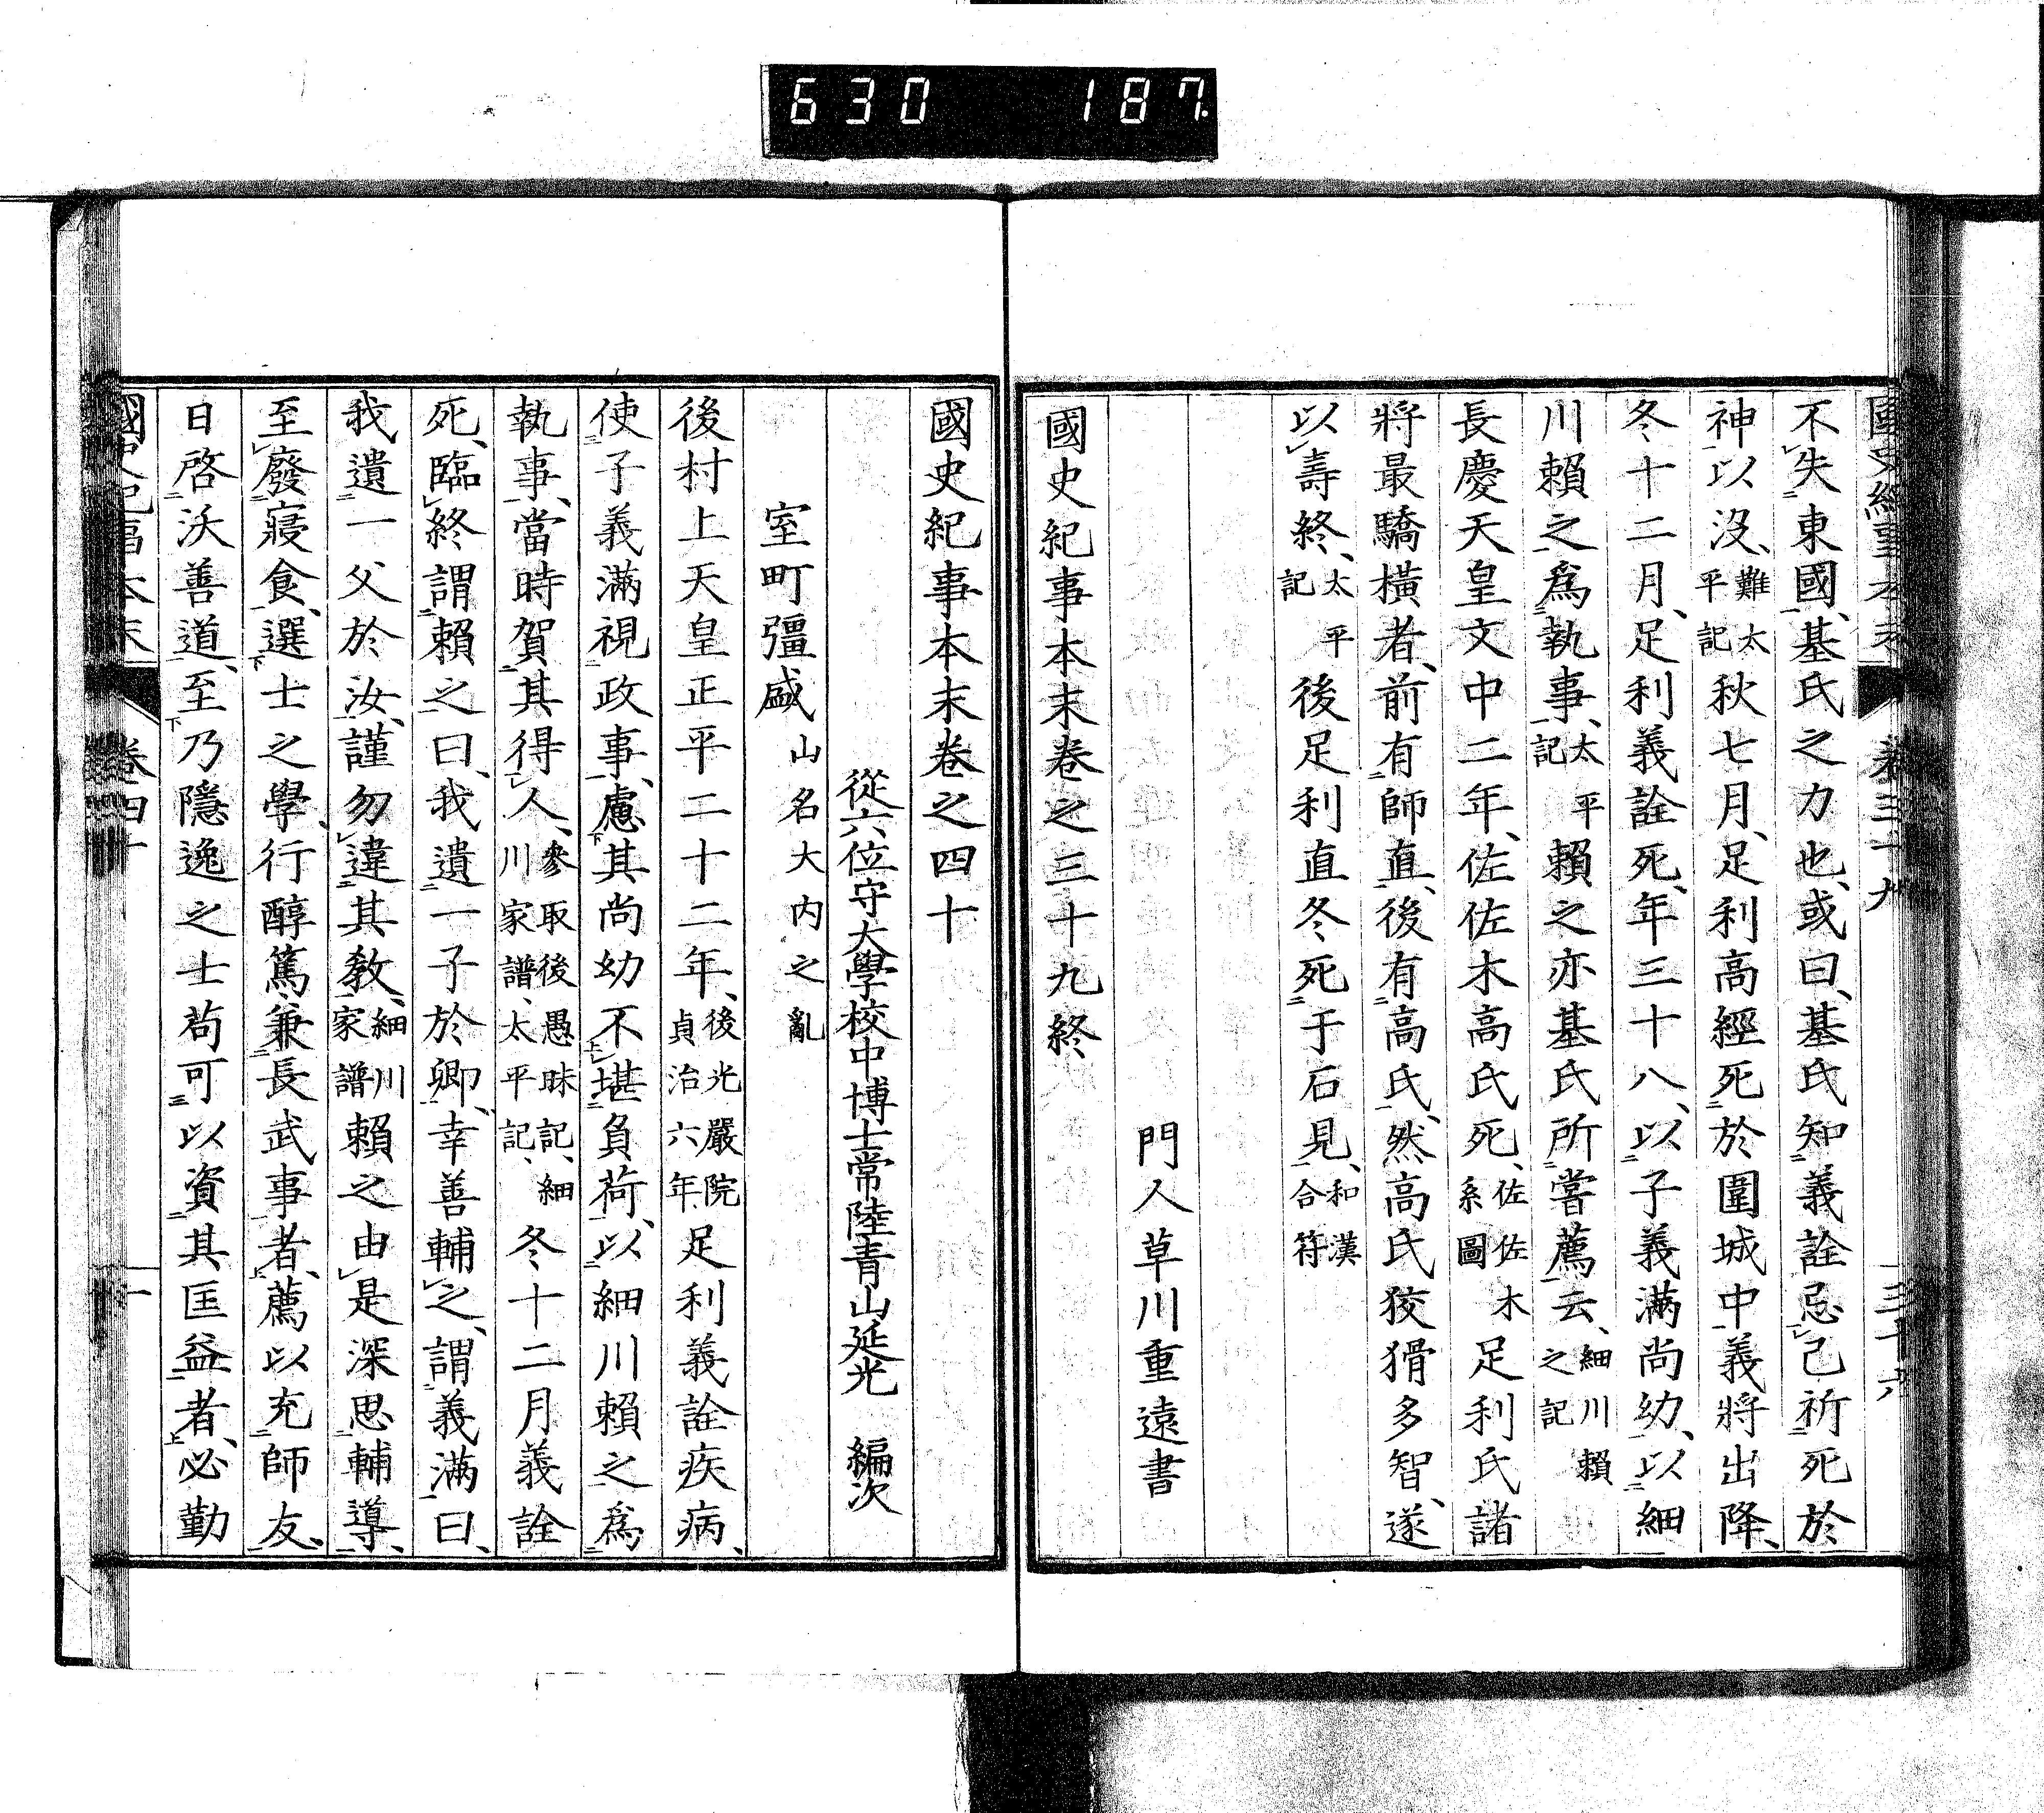 630 187.
國史紀事本末 卷三十九 三十六
不失東國、基氏之力也、或曰、基氏知義詮忌己、祈死於
神以沒、難太平記秋七月、足利高經死於圍城中、義將出降、
冬十二月、足利義詮死、年三十八、以子義滿尚幼、以細
川賴之為執事、太平記賴之亦基氏所嘗薦云、細川賴之記
長慶天皇文中二年、佐佐木高氏死、佐佐木系圖足利氏諸
將最驕橫者、前有師直、後有高氏、然高氏狡猾多智、遂
以壽終、太平記後足利直冬死于石見、和漢合符
門人草川重遠書
國史紀事本末卷之三十九終
國史紀事本末卷之四十
從六位守大學校中博士常陸青山延光 編次
室町彊盛山名大内之亂
後村上天皇正平二十二年、後光嚴院貞治六年、足利義詮疾病、
使子義滿視政事、慮其尚幼不堪負荷、以細川賴之為
執事、當時賀其得人、參取後愚昧記、細川家譜、太平記、冬十二月義詮
死、臨終謂賴之曰、我遺一子於卿、幸善輔之、謂義滿曰、
我遺一父於汝、謹勿違其教、細川家譜賴之由是深思輔導、
至廢寢食、選士之學行醇篤、兼長武事者、薦以充師友、
日啓沃善道、至乃隱逸之士苟可以資其匡益者、必勤
國史紀事本末 卷四十 一